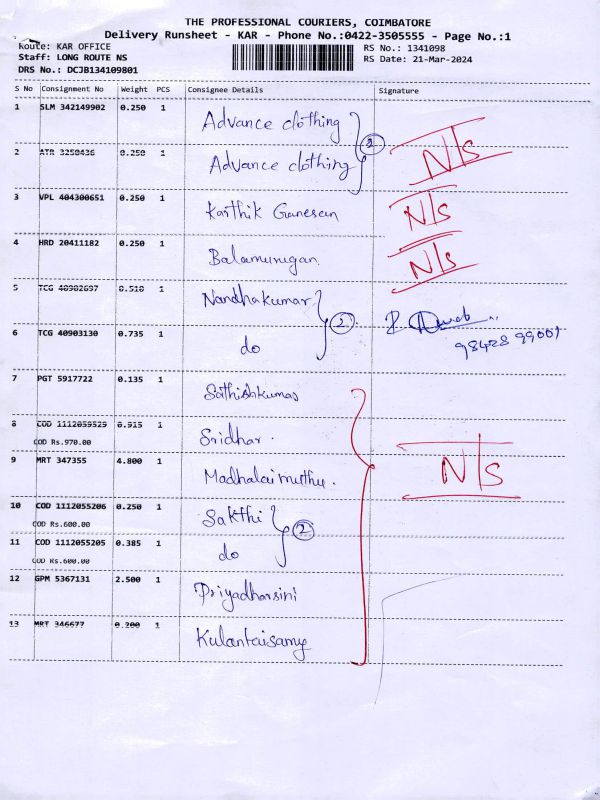 THE PROFESSIONAL COURIERS, COIMBATORE
Delivery Runsheet - KAR - Phone No.:0422-3505555 - Page No.:1
Route: KAR OFFICE
Staff: LONG ROUTE NS
DRS No.: DCJB134109801
RS No.: 1341098
RS Date: 21-Mar-2024
S No Consignment No Weight PCS Consignee Details Signature
1 SLM 342149902 0.250 1 Advance clothing
2 ATR 3250436 0.250 1 Advance clothing 2 N/S
3 VPL 404300651 0.250 1 Karthik Ganesan N/S
4 HRD 20411182 0.250 1 Balamurugan. N/S
5 TCG 40902697 0.510 1 Nandhakumar
6 TCG 40903130 0.735 1 do 2 98428 99001
7 PGT 5917722 0.135 1 Sathishkumar
8 COD 1112059529 0.915 1 Sridhar.
COD Rs.970.00
9 MRT 347355 4.800 1 Madhalaimuthu. N/S
10 COD 1112055206 0.250 1 Sakthi
COD Rs.600.00
11 COD 1112055205 0.385 1 do 2
COD Rs.600.00
12 GPM 5367131 2.500 1 Priyadharsini
13 MRT 346677 0.200 1 Kulantaisamy